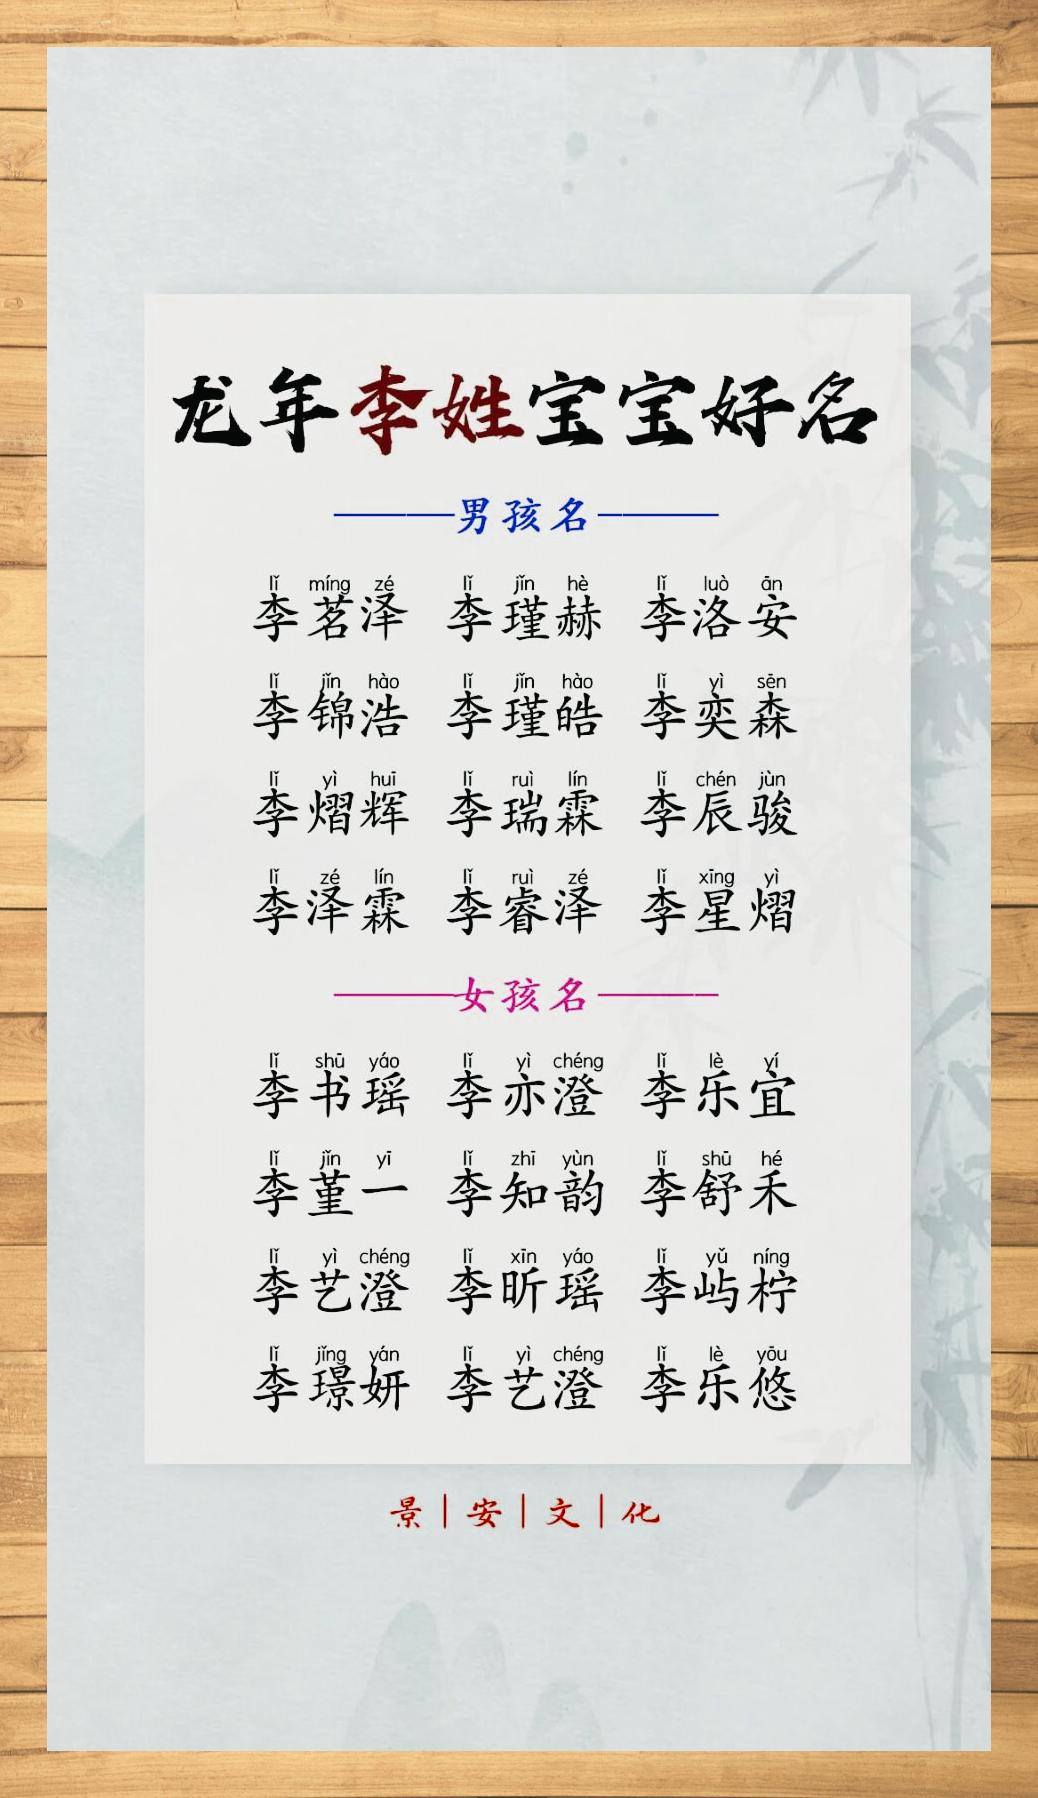 龙年李姓宝宝好名
———男孩名———
lǐ míng zé lǐ jǐn hè lǐ luò ān
李茗泽 李瑾赫 李洛安
lǐ jǐn hào lǐ jǐn hào lǐ yì sēn
李锦浩 李瑾皓 李奕森
lǐ yì huī lǐ ruì lín lǐ chén jùn
李熠辉 李瑞霖 李辰骏
lǐ zé lín lǐ ruì zé lǐ xīng yì
李泽霖 李睿泽 李星熠
———女孩名———
lǐ shū yáo lǐ yì chéng lǐ lè yí
李书瑶 李亦澄 李乐宜
lǐ jǐn yī lǐ zhī yùn lǐ shū hé
李堇一 李知韵 李舒禾
lǐ yì chéng lǐ xīn yáo lǐ yǔ níng
李艺澄 李昕瑶 李屿柠
lǐ jǐng yán lǐ yì chéng lǐ lè yōu
李璟妍 李艺澄 李乐悠
景|安|文|化